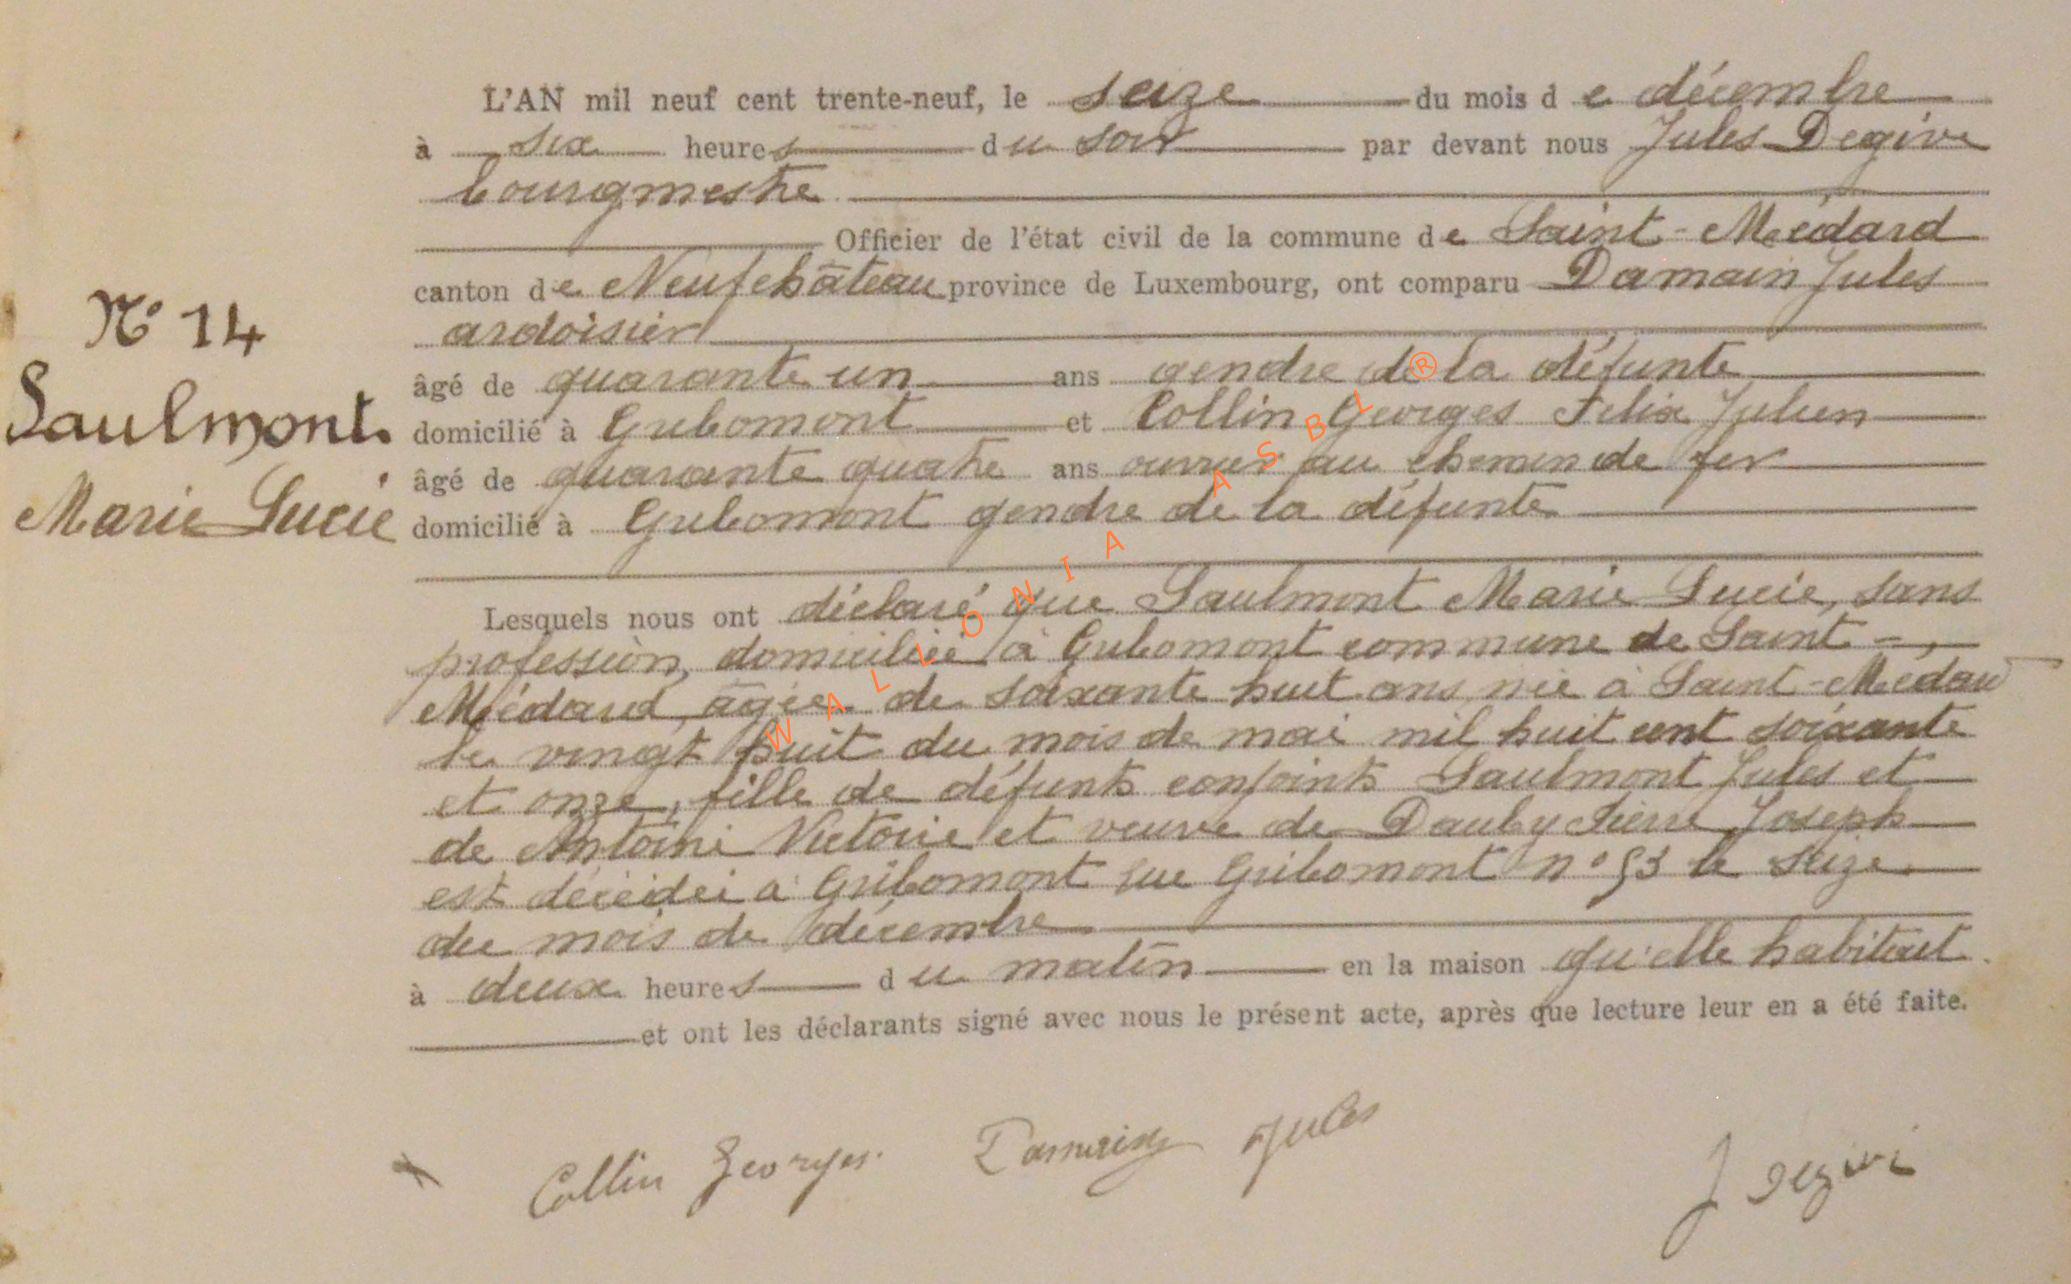 L'AN mil neuf cent trente-neuf, le seize du mois de décembre
à six heures du soir par devant nous Jules Degive
bourgmestre
Officier de l'état civil de la commune de Saint-Médard
canton de Neufchâteau province de Luxembourg, ont comparu Damain Jules
ardoisier
âgé de quarante un ans gendre de la défunte
domicilié à Gribomont et Collin Georges Felix Julien
âgé de quarante quatre ans ouvrier au chemin de fer
domicilié à Gribomont gendre de la défunte
N° 14
Saulmont
Marie Lucie
Lesquels nous ont déclaré que Saulmont Marie Lucie, sans
profession, domiciliée à Gribomont commune de Saint-
Médard, âgée de soixante huit ans, née à Saint-Médard
le vingt huit du mois de mai mil huit cent soixante
et onze, fille de défunts conjoints Saulmont Jules et
de Antoine Victorie et veuve de Dauby Pierre Joseph
est décédée à Gribomont rue Gribomont n° 53 le seize
du mois de décembre
à deux heures du matin en la maison qu'elle habitait
et ont les déclarants signé avec nous le présent acte, après que lecture leur en a été faite.
Collin Georges Damain Jules J Degive
WALLONIA ASBL ®